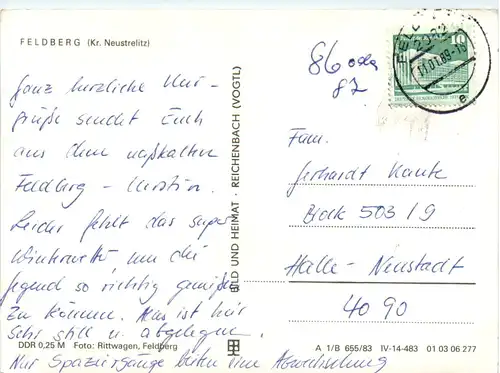 FELDBERG (Kr. Neustrelitz)
Ganz herzliche Ur-
grüße sendet Euch
aus dem naßkalten
Feldberg - Kerstin.
Leider fehlt das super
Winterwetter um die
Gegend so richtig genießen
zu können. Aber ist hier
sehr still u. abgelegen.
Nur Spaziergänge bieten eine Abwechslung
DDR 0,25 M Foto: Rittwagen, Feldberg
BILD UND HEIMAT · REICHENBACH (VOGTL)
86 oder
87
2082
11.01.89-10
e
10
Fam.
Gerhardt
Block 503/9
Halle-Neustadt
4090
A 1/B 655/83 IV-14-483 01 03 06 277